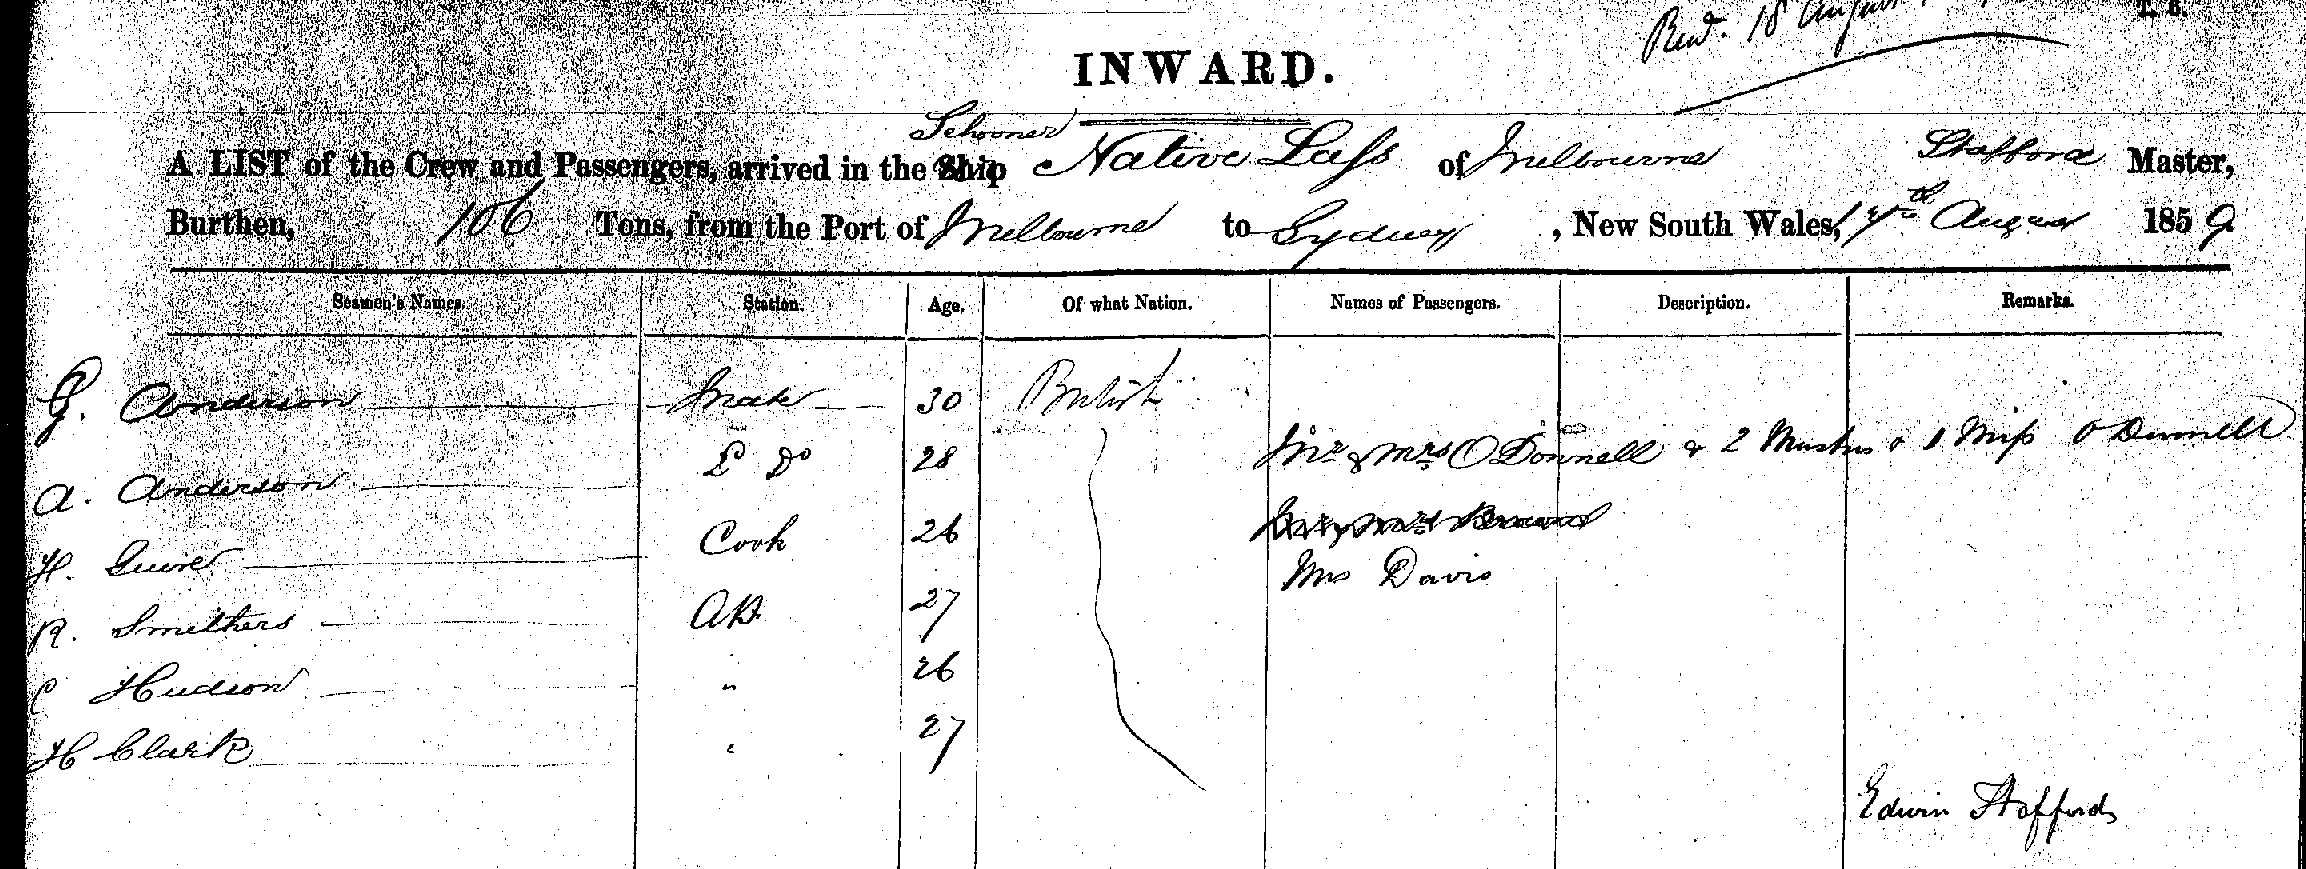 Recd. 18 August
L. S.
INWARD.
Schooner
A LIST of the Crew and Passengers, arrived in the Ship Native Lass of Melbourne Stafford Master,
Burthen, 106 Tons, from the Port of Melbourne to Sydney, New South Wales, 17th August 1859.
Seamen's Names. Station. Age. Of what Nation. Names of Passengers. Description. Remarks.
Anderson Mate 30 British
A. Anderson 2 Do 28 Mr & Mrs O Donnell & 2 Masters & 1 Miss O Donnell
H. Guire Cook 26 Mrs Brown
Mrs Davis
R. Smithers AB 27
C Hudson " 26
H Clark " 27
Edwin Stafford